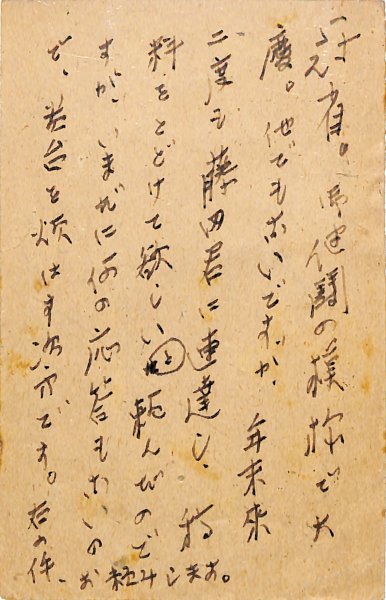 冠省。御健闘の模様で大
慶。他でもないですが、年末来
二度も藤田君に連達し、稿
料をとどけて欲しいと頼んだので
すが、いまだに何の応答もないの
で、貴台を煩はす次第です。右の件、
お頼みします。